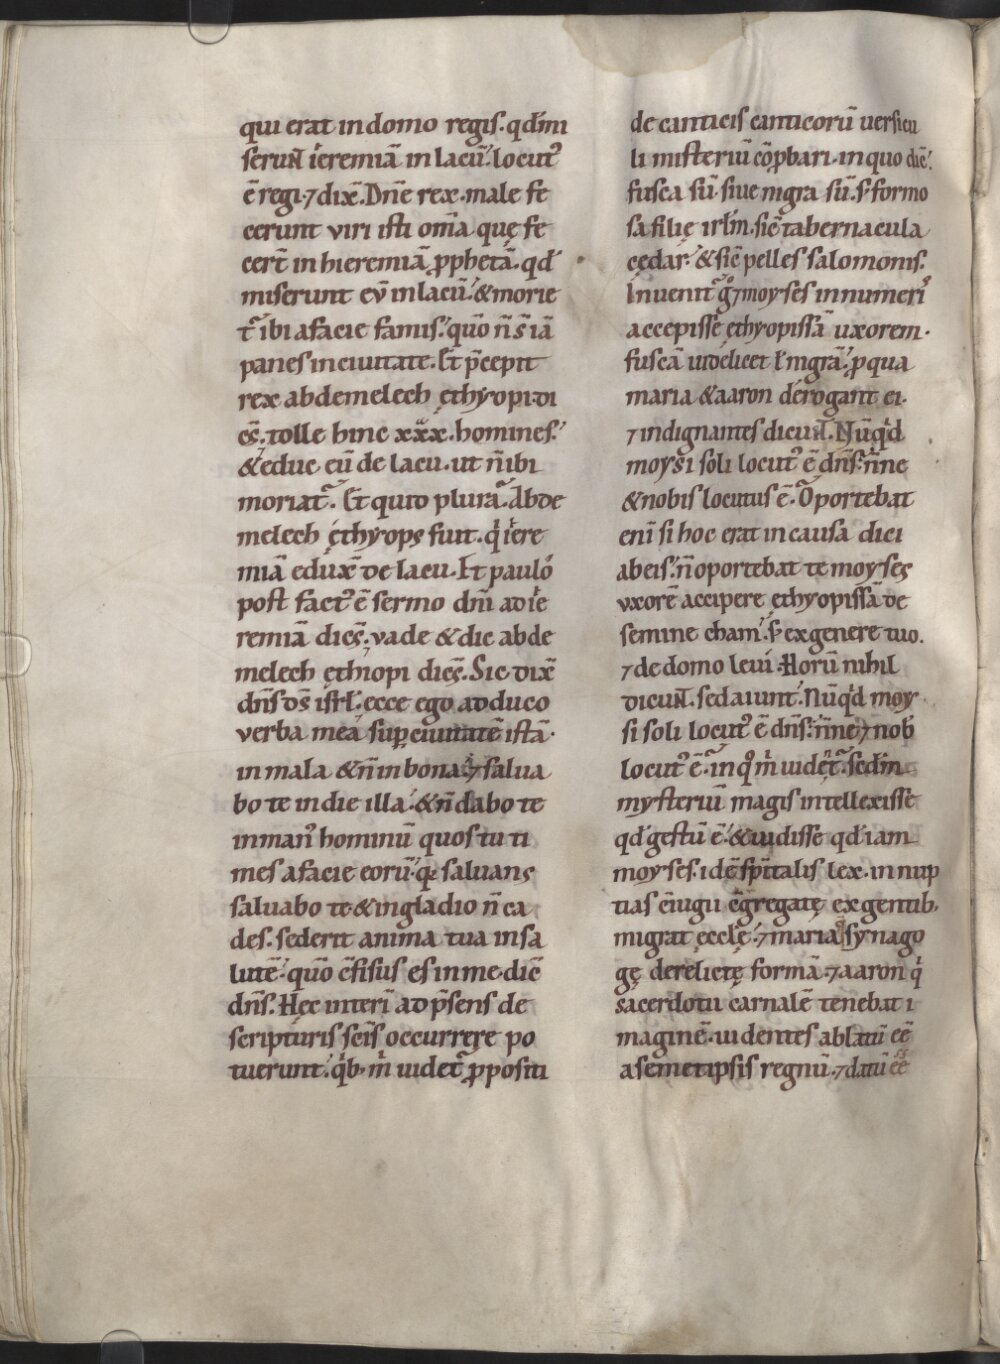 qui erat in domo regis. qđ mi
serunt ieremiā in lacū. locut᷒
ē regi ⁊ dix̄. Dn̄e rex. male fe
cerunt viri isti om̄a quę fe
cert̄ in hieremiā ꝓphetā. qđ
miserunt eū in lacū. & morie
t᷑ ibi a facie famis. quō n̄ s̄ iā
panes in ciuitate. Et p̄cepit
rex abdemelech ęthyopi di
cēs. tolle hinc xxx. homines.
& educ eū de lacu. ut n̄ ibi
moriat᷑. Et quid plura. Abde
melech ęthyops fuit. qͥ iere
miā edux̄ de lacu. Et paulo
post fact᷒ ē sermo dn̄i ad ie
remiā dicēs. vade & dic abde
melech ęthiopi dicēs. Sic dix̄
dn̄s ds̄ isrl̄. ecce ego adduco
verba mea sup ciuitatē istā.
in mala & n̄ in bona. ⁊ salua
bo te in die illa. & n̄ dabo te
in man᷒ hominū quos tu ti
mes a facie eorū. qͣ saluans
saluabo te & in gladio n̄ ca
des. sed erit anima tua in sa
lutē. quō c̄fisus es in me dic̄
dn̄s. Hęc interī ad p̄sens de
scripturis sc̄is occurrere po
tuerunt. qͥb. mͥ uidet᷑ ꝓpositi
de canticis canticorū uersicu
li misteriū cōꝓbari. in quo dic̄.
fusca sū. siue nigra sū. s; formo
sa filię irl̄m. sic̄ tabernacula
cędar. & sic̄ pelles salomonis.
Inuenit᷑ gͦ ⁊ moyses in numerͥ
accepisse ęthyopissā uxorem.
fuscā uidelicet ł nigrā. ꝓ qua
maria & aaron derogant ei.
⁊ indignantes dicunt. Nūqͥd
moysi soli locut᷒ ē dn̄s. n̄ne
& nobis locutus ē. Oportebat
enī si hoc erat in causa dici
ab eis. n̄ oportebat te moyses
vxorē accipere ęthyopissā de
semine cham. s; ex genere tuo.
⁊ de domo leui. Horū nihil
dicunt. sed aiunt. Nūqͥd moy
si soli locut᷒ ē dn̄s. n̄ne ⁊ nob̄
locut᷒ ē. in qͦ mͥ uidēt᷑. sed m̄
mysteriū magis intellexisse
qđ gestū ē. & uidisse qđ iam
moyses. id ē sp̄italis lex. in nup
tias c̄iugii c̄gregatę ex gentib;
migrat ęccl̄ę. ⁊ maria synago
gę derelictę formā. ⁊ aaron qͥ
sacerdotii carnalē tenebat i
maginē. uidentes ablatū eē
a semetipsis regnū. ⁊ datū eē